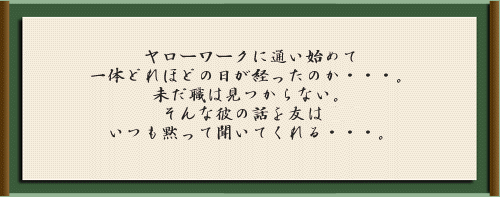 ヤローワークに通い始めて
一体どれほどの日が経ったのか・・・。
未だ職は見つからない。
そんな彼の話を友は
いつも黙って聞いてくれる・・・。